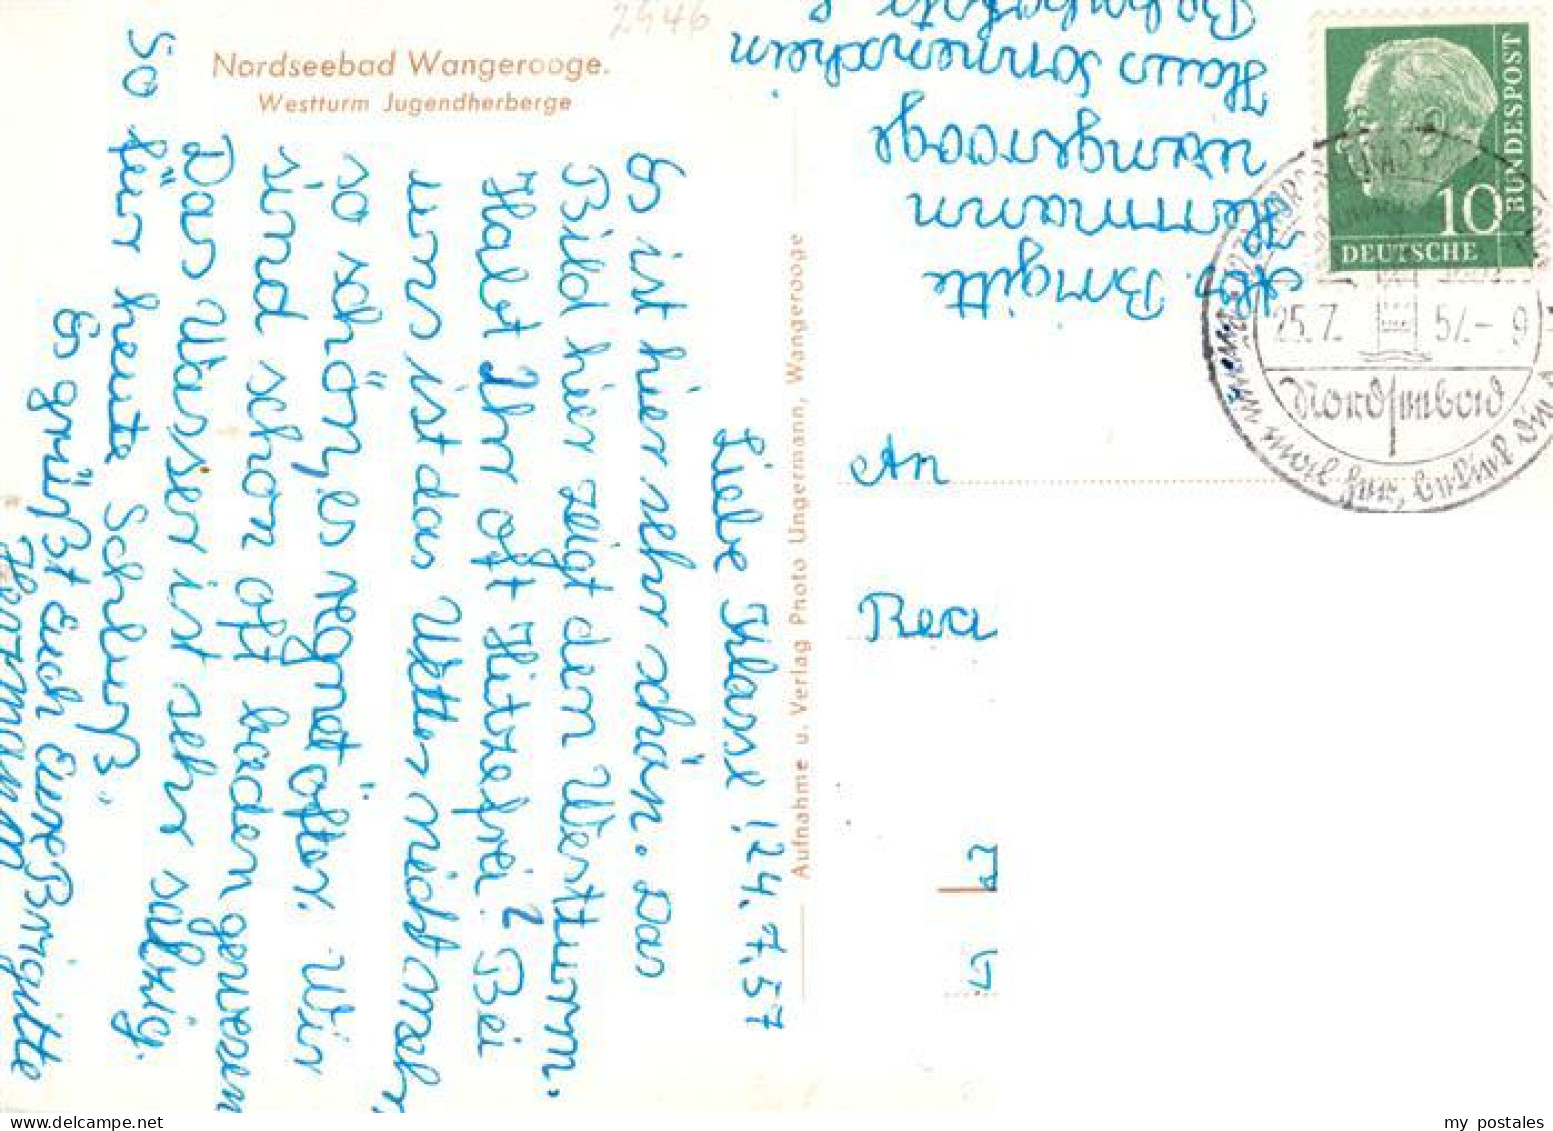 2446
Nordseebad Wangerooge.
Westturm Jugendherberge
Liebe Klasse! 24.7.57
Es ist hier sehr schön. Das
Bild hier zeigt den Westturm.
Habt Ihr oft Hitzefrei? Bei
uns ist das Wetter nicht
so schön, es regnet öfter. Wir
sind schon oft baden gewesen
Das Wasser ist sehr salzig.
So für heute Schluß.
Es grüßt Euch Eure Brigitte
Herrmann
Aufnahme u. Verlag Photo Ungermann, Wangerooge
Abs. Brigitte
Herrmann
Wangerooge
Haus Sonnenschein
An
DEUTSCHE
BUNDESPOST
10
25.7. 57.- 9
Nordseebad
my postales